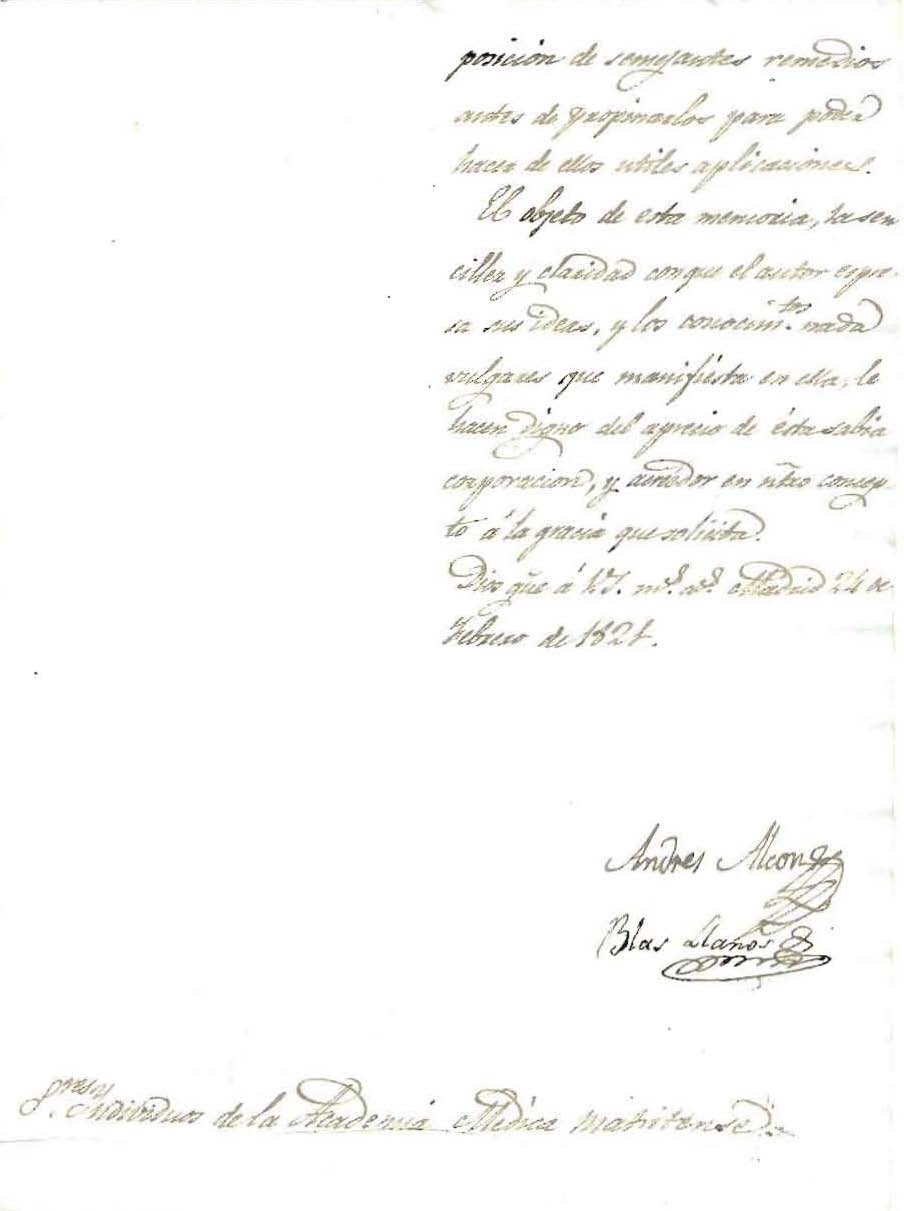 posicion de semejantes remedios
antes de propinarlos para poder
hacer de ellos utiles aplicaciones.
El objeto de esta memoria, la sen
cillez y claridad con que el autor espre-
sa sus ideas, y los conocim.tos nada
vulgares que manifiésta en ella, le
hacen digno del aprecio de ésta sabia
corporacion, y acreedor en ntr̃o concep
to á la gracia que solicita.
Dios güe á VS. m.s a.s Madrid 24 de
Febrero de 1821.
Andres Alcon
Blas Llanos
S.res Individuos de la Academia Médica matritense.